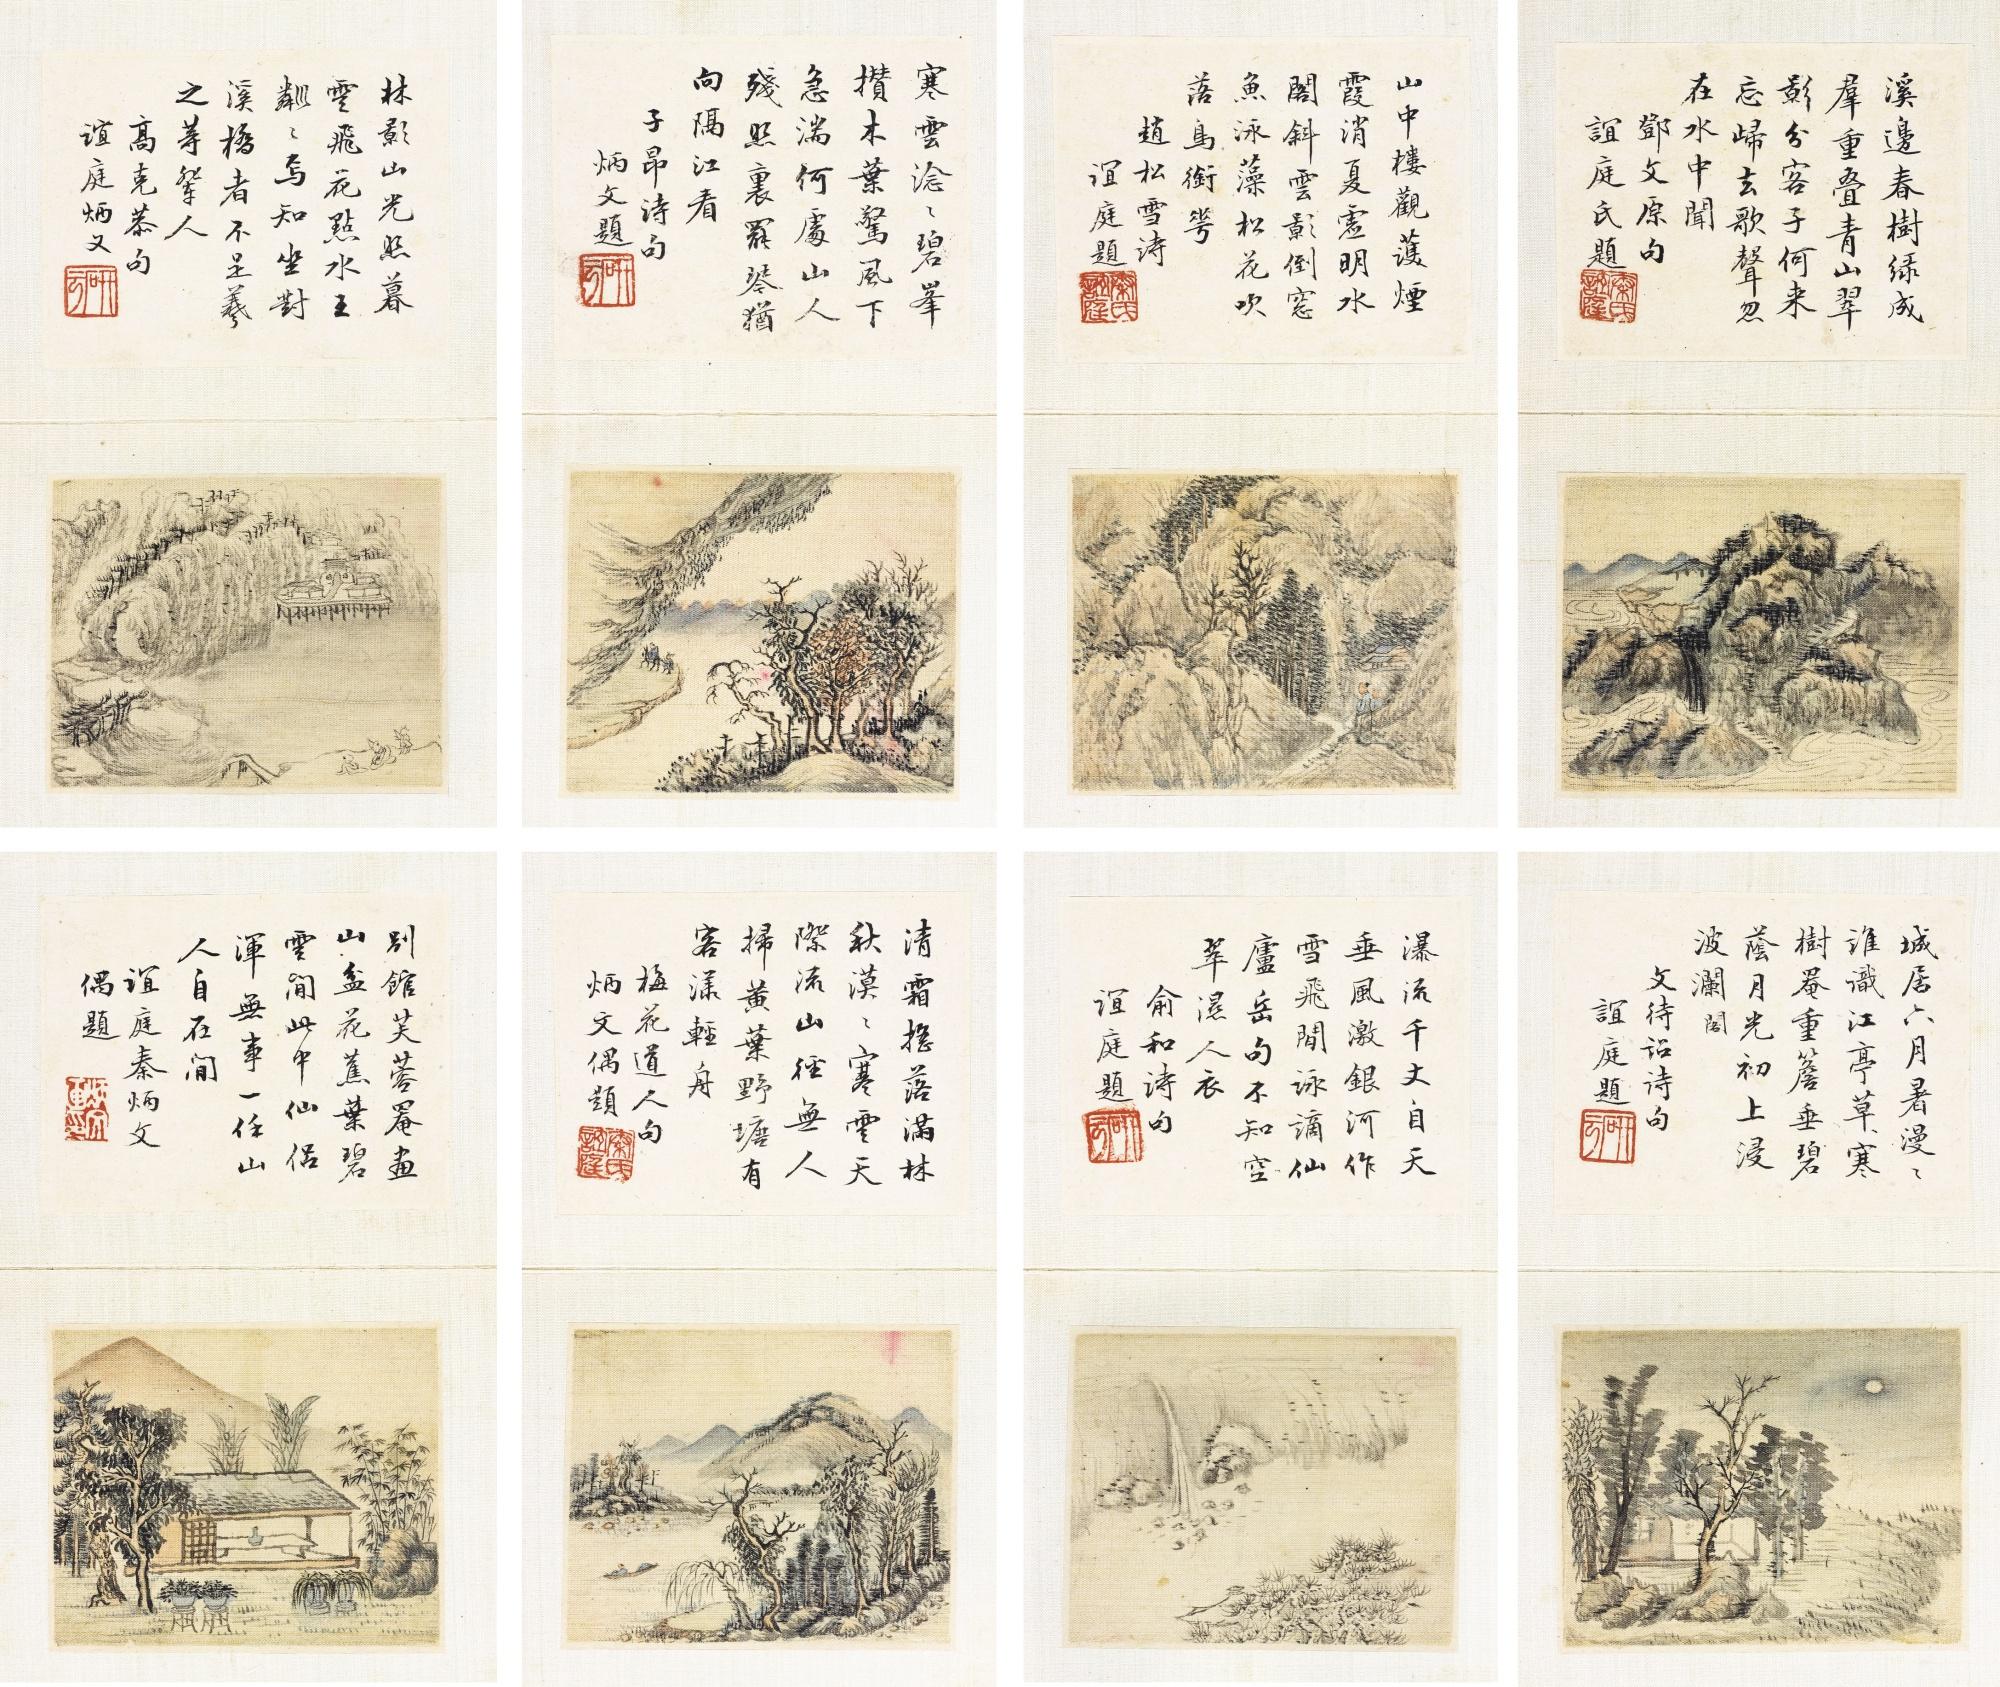 林影山光照暮
雲飛花點水玉
粼〻焉知坐對
溪橋者不是羲
之等輩人
高克恭句
誼庭炳文
研雲
寒雲淰〻碧峯
攢木葉驚風下
急湍何處山人
殘照裏罷琴猶
向隔江看
子昂詩句
炳文題
研雲
山中樓觀護煙
霞消夏虛明水
閣斜雲影倒窓
魚泳藻松花吹
落鳥銜蕚
趙松雪詩
誼庭題
秦氏誼庭
溪邊春樹綠成
羣重疊青山翠
影分客子何来
忘歸去歌聲忽
在水中聞
鄧文原句
誼庭氏題
秦氏誼庭
別館芙蓉罨畫
山盆花蕉葉碧
雲間此中仙侶
渾無事一任山
人自在間
誼庭秦炳文
偶題
清霜擔落滿林
秋漠〻寒雲天
際流山徑無人
掃黃葉野塘有
客漾輕舟
梅花道人句
炳文偶題
秦氏誼庭
瀑流千丈自天
垂風激銀河作
雪飛閒詠謫仙
廬岳句不知空
翠濕人衣
俞和詩句
誼庭題
研雲
城居六月暑漫〻
誰識江亭草寒
樹罨重簷垂碧
蔭月光初上浸
波瀾閣
文待詔詩句
誼庭題
研雲